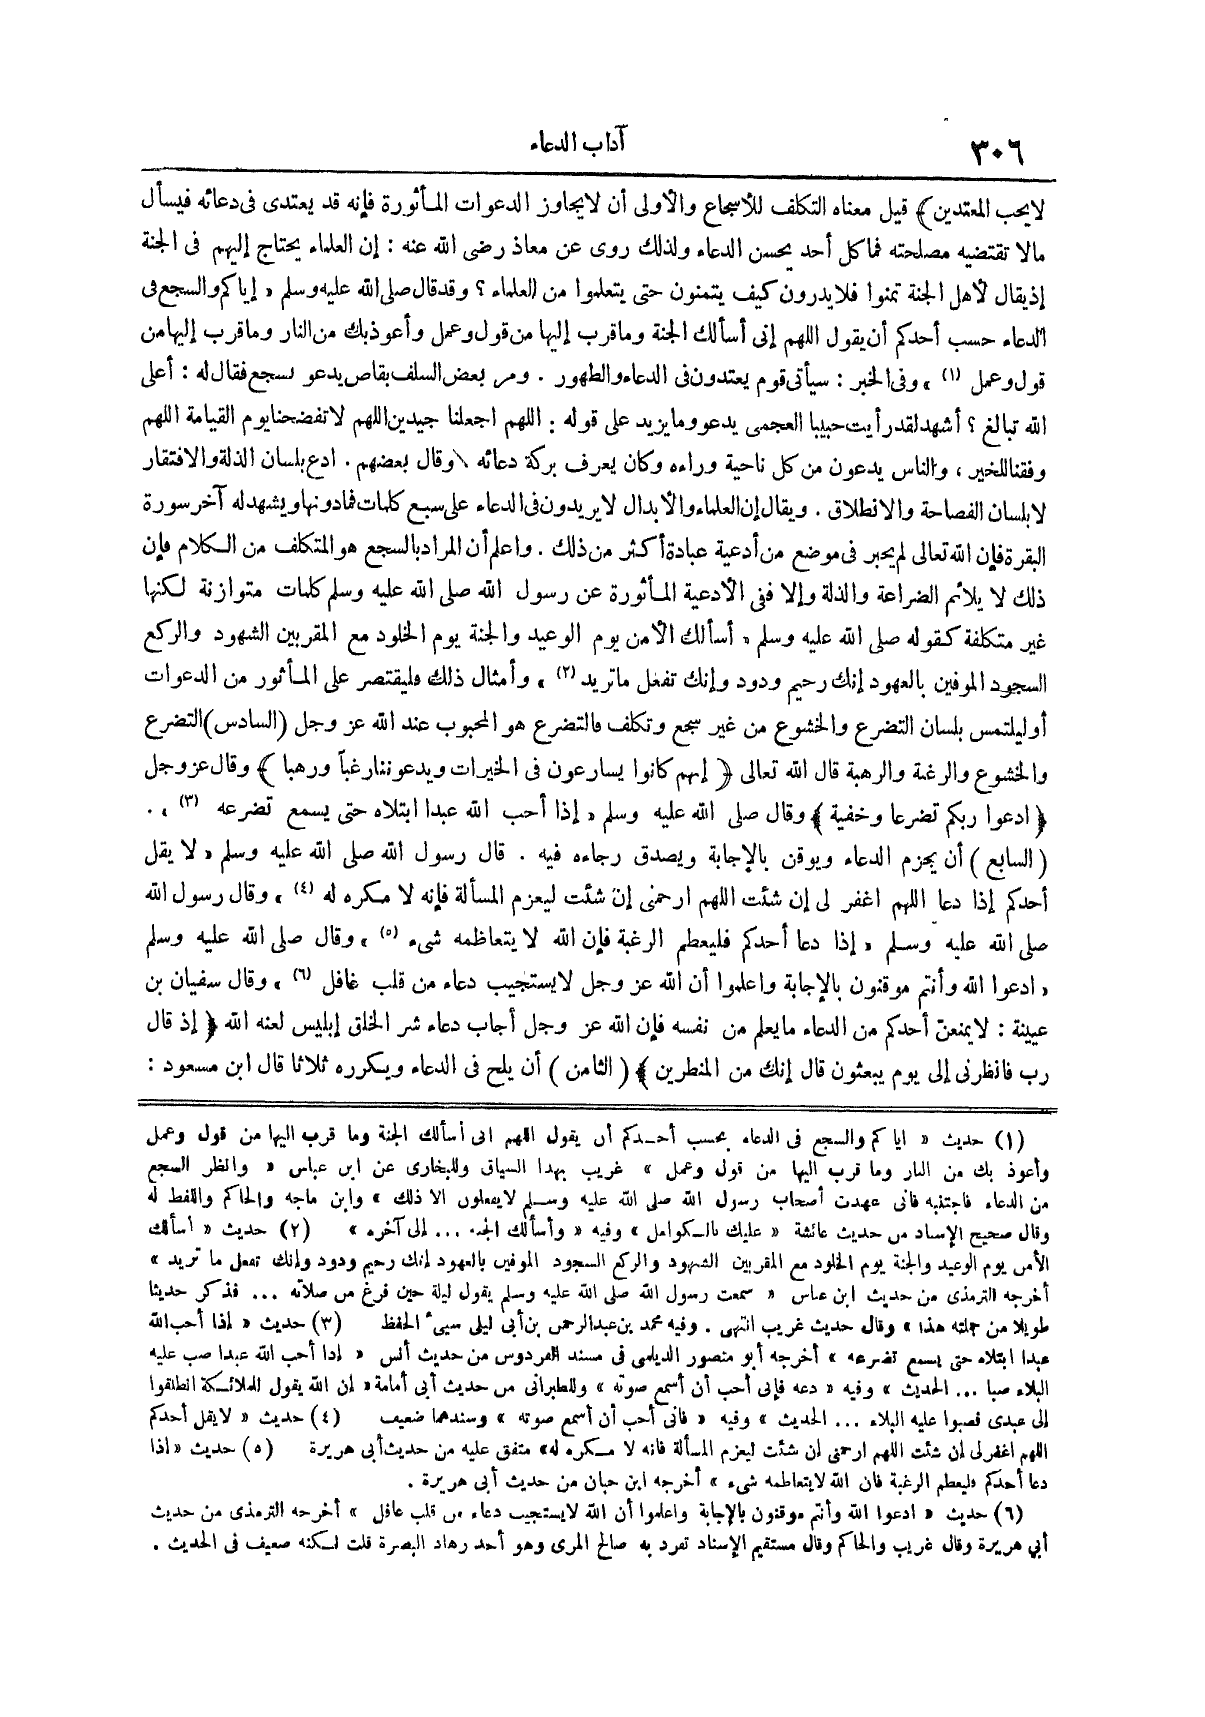 ٣٠٦
آداب الدعاء
لا يحب المعتدين ﴾ قيل معناه التكلف للأسجاع والأولى أن لا يجاوز الدعوات المـأثورة فإنه قد يعتدى فى دعائه فيسأل
مالا تقتضيه مصلحته فما كل أحد يحسن الدعاء ولذلك روى عن معاذ رضى الله عنه : إن العلماء يحتاج إليهم فى الجنة
إذ يقال لأهل الجنة تمنوا فلا يدرون كيف يتمنون حتى يتعلموا من العلماء ؟ وقد قال صلى الله عليه وسلم « إياكم والسجع فى
الدعاء حسب أحدكم أن يقول اللهم إنى أسألك الجنة وما قرب إليها من قول وعمل وأعوذ بك من النار وما قرب إليها من
قول وعمل (١) » وفى الخبر : سيأتى قوم يعتدون فى الدعاء والطهور . ومر بعض السلف بقاص يدعو بسجع فقال له : أعلى
الله تبالغ ؟ أشهد لقد رأيت حبيبا العجمى يدعو وما يزيد على قوله : اللهم اجعلنا جيدين اللهم لا تفضحنا يوم القيامة اللهم
وفقنا للخير ، والناس يدعون من كل ناحية وراءه وكان يعرف بركة دعائه \ وقال بعضهم . ادع بلسان الذلة والافتقار
لا بلسان الفصاحة والانطلاق . ويقال إن العلماء والأبدال لا يزيدون فى الدعاء على سبع كلمات فما دونها ويشهد له آخر سورة
البقرة فإن الله تعالى لم يخبر فى موضع من أدعية عبادة أكثر من ذلك . واعلم أن المراد بالسجع هو المتكلف من الـكلام فإن
ذلك لا يلائم الضراعة والذلة وإلا ففى الأدعية المـأثورة عن رسول الله صلى الله عليه وسلم كلمات متوازنة لكنها
غير متكلفة كقوله صلى الله عليه وسلم « أسألك الأمن يوم الوعيد والجنة يوم الخلود مع المقربين الشهود والركع
السجود الموفين بالعهود إنك رحيم ودود وإنك تفعل ما تريد (٢) » وأمثال ذلك فليقتصر على المـأثور من الدعوات
أو ليلتمس بلسان التضرع والخشوع من غير سجع وتكلف فالتضرع هو المحبوب عند الله عز وجل (السادس) التضرع
والخشوع والرغبة والرهبة قال الله تعالى ﴿ إنهم كانوا يسارعون فى الخيرات ويدعوننا رغباً ورهبا ﴾ وقال عز وجل
﴿ ادعوا ربكم تضرعا وخفية ﴾ وقال صلى الله عليه وسلم « إذا أحب الله عبدا ابتلاه حتى يسمع تضرعه (٣) » .
( السابع ) أن يجزم الدعاء ويوقن بالإجابة ويصدق رجاءه فيه . قال رسول الله صلى الله عليه وسلم « لا يقل
أحدكم إذا دعا اللهم اغفر لى إن شئت اللهم ارحمنى إن شئت ليعزم المسألة فإنه لا مكره له (٤) » وقال رسول الله
صلى الله عليه وسـلم « إذا دعا أحدكم فليعظم الرغبة فإن الله لا يتعاظمه شىء (٥) » وقال صلى الله عليه وسلم
« ادعوا الله وأنتم موقنون بالإجابة واعلموا أن الله عز وجل لا يستجيب دعاء من قلب غافل (٦) » وقال سفيان بن
عيينة : لا يمنعن أحدكم من الدعاء ما يعلم من نفسه فإن الله عز وجل أجاب دعاء شر الخلق إبليس لعنه الله ﴿ إذ قال
رب فانظرنى إلى يوم يبعثون قال إنك من المنظرين ﴾ ( الثامن ) أن يلح فى الدعاء ويكرره ثلاثا قال ابن مسعود :
(١) حديث « اياكم والسجع فى الدعاء بحسب أحـدكم أن يقول اللهم انى أسألك الجنة وما قرب اليها من قول وعمل
وأعوذ بك من النار وما قرب اليها من قول وعمل » غريب بهذا السياق وللبخارى عن ابن عباس « وانظر السجع
من الدعاء فاجتنبه فانى عهدت أصحاب رسول الله صلى الله عليه وسـلم لا يفعلون الا ذلك » وابن ماجه والحاكم واللفظ له
وقال صحيح الإسناد من حديث عائشة « عليك بالـكوامل » وفيه « وأسألك الجنة ... إلى آخره » (٢) حديث « أسألك
الأمن يوم الوعيد والجنة يوم الخلود مع المقربين الشهود والركع السجود الموفين بالعهود إنك رحيم ودود وإنك تفعل ما تريد »
أخرجه الترمذى من حديث ابن عباس « سمعت رسول الله صلى الله عليه وسلم يقول ليلة حين فرغ من صلاته ... فذكر حديثا
طويلا من جملته هذا » وقال حديث غريب انتهى . وفيه محمد بن عبدالرحمن بن أبى ليلى سيىء الحفظ (٣) حديث « إذا أحب الله
عبدا ابتلاه حتى يسمع تضرعه » أخرجه أبو منصور الديلمى فى مسند الفردوس من حديث أنس « إذا أحب الله عبدا صب عليه
البلاء صبا ... الحديث » وفيه « دعه فإنى أحب أن أسمع صوته » وللطبرانى من حديث أبى أمامة « إن الله يقول للملائـكة انطلقوا
إلى عبدى فصبوا عليه البلاء ... الحديث » وفيه « فانى أحب أن أسمع صوته » وسندهما ضعيف (٤) حديث « لا يقل أحدكم
اللهم اغفر لى إن شئت اللهم ارحمنى إن شئت ليعزم المسألة فانه لا مـكره له » متفق عليه من حديث أبى هريرة (٥) حديث « اذا
دعا أحدكم فليعظم الرغبة فان الله لا يتعاظمه شىء » أخرجه ابن حبان من حديث أبى هريرة .
(٦) حديث « ادعوا الله وأنتم موقنون بالإجابة واعلموا أن الله لا يستجيب دعاء من قلب غافل » أخرجه الترمذى من حديث
أبي هريرة وقال غريب والحاكم وقال مستقيم الإسناد تفرد به صالح المرى وهو أحد زهاد البصرة قلت لـكنه ضعيف فى الحديث .